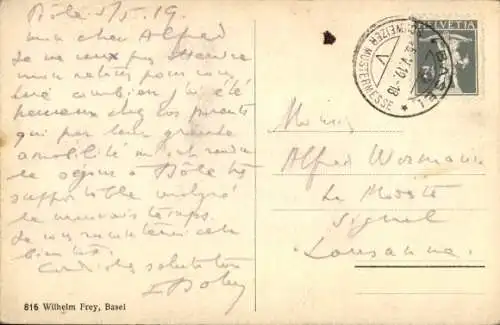 Bôle 5/5.19.
Mon cher Alfred
Je ne veux pas attendre
mon retour pour vous
dire combien j'ai été
heureux chez vos parents
qui par leur grande
amabilité m'ont rendu
le séjour à Bôle très
supportable malgré
le mauvais temps.
Je vous raconterai cela
bientôt.
Cordiales salutations
616 Wilhelm Frey, Basel
HELVETIA
SCHWEIZER MUSTERMESSE
BASEL
V.19.-18
Monsieur
Alfred
La
Signal
Lausanne.